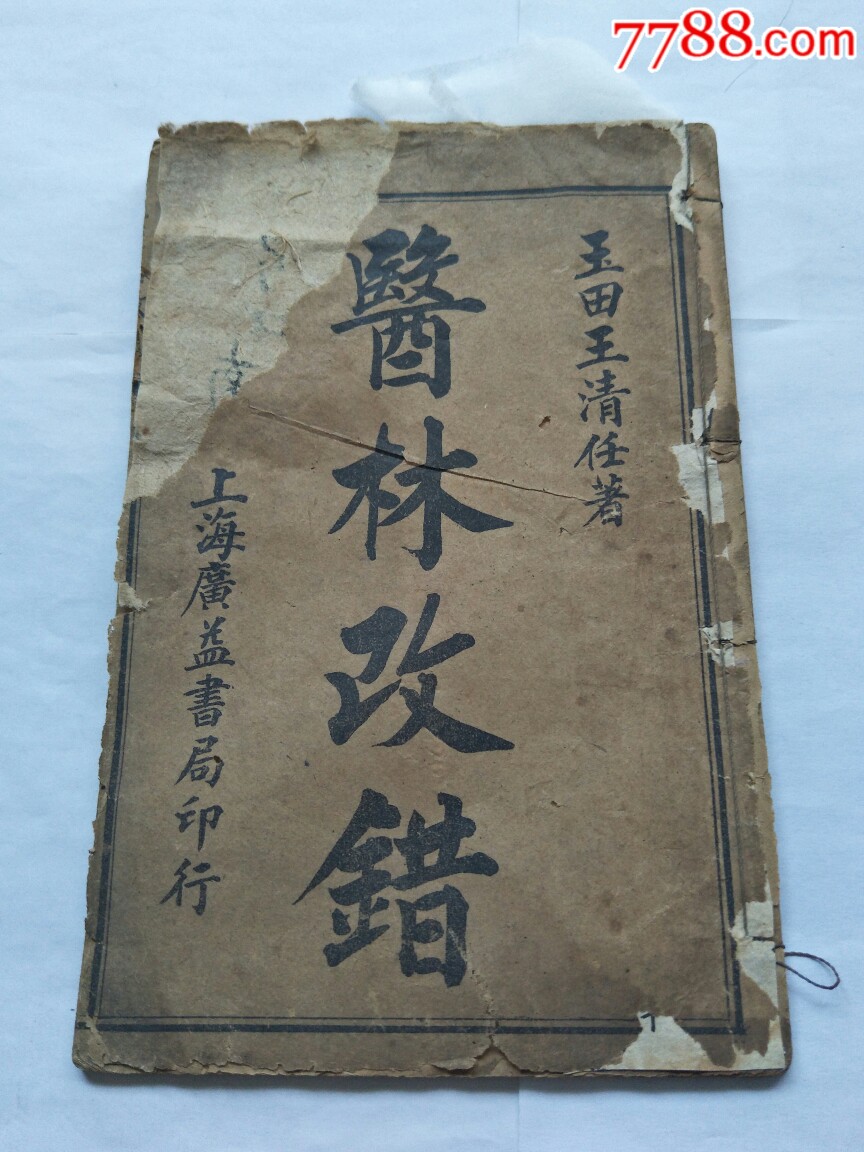 7788.com
玉田王清任著
醫林改錯
上海廣益書局印行